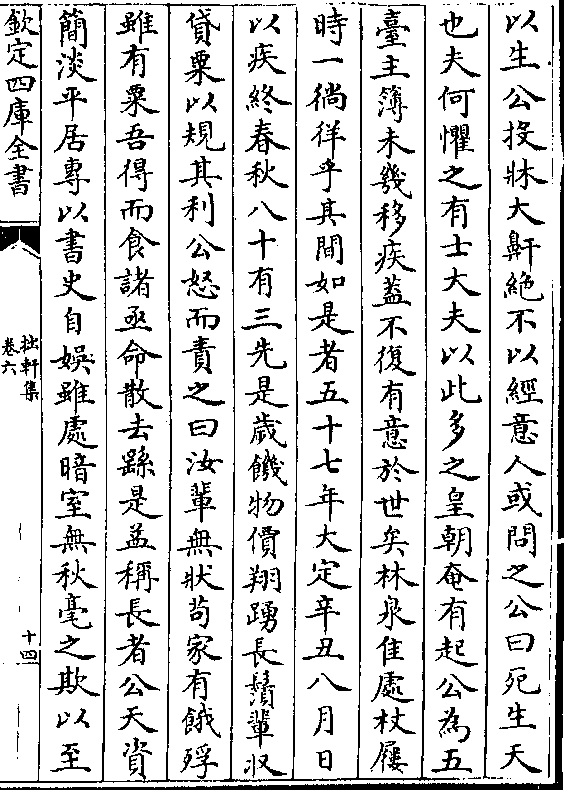 以生公投牀大鼾絶不以經意人或問之公曰死生天
也夫何懼之有士大夫以此多之皇朝奄有起公為五
臺主簿未幾移疾蓋不復有意於世矣林泉佳處杖屨
時一徜徉乎其間如是者五十七年大定辛丑八月日
以疾終春秋八十有三先是歲饑物價翔踴長鬚輩収
貸粟以規其利公怒而責之曰汝輩無狀苟家有餓殍
雖有粟吾得而食諸亟命散去繇是益稱長者公天資
簡淡平居專以書史自娯雖處暗室無秋毫之欺以至
欽定四庫全書
拙軒集
卷六
十四